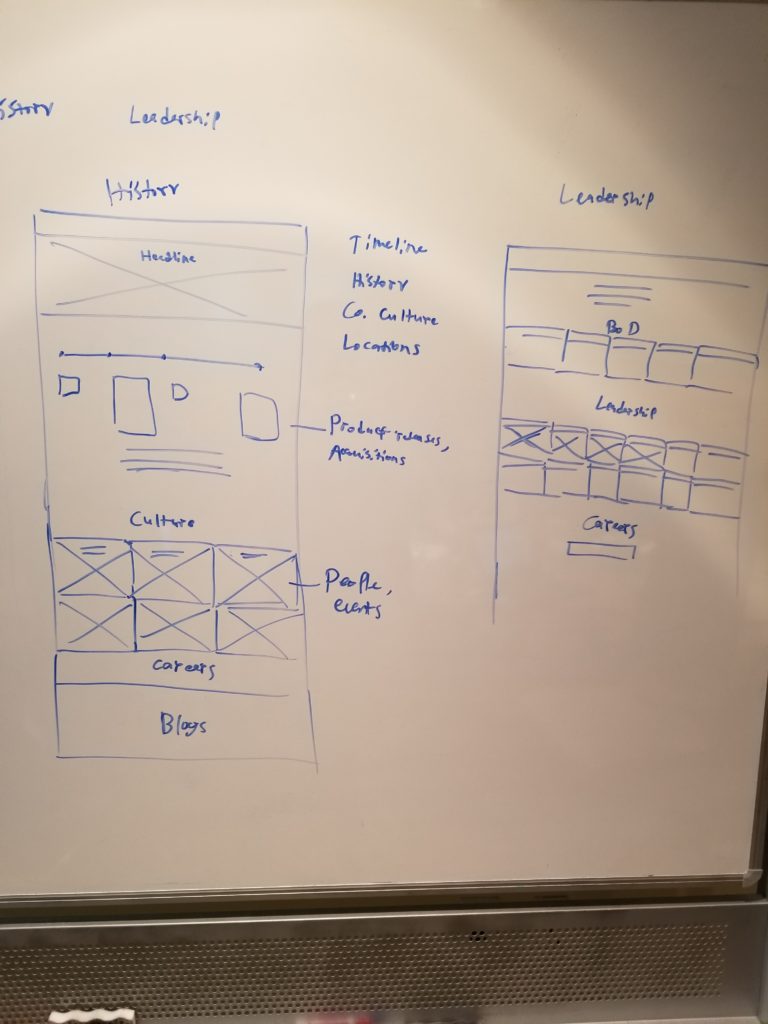 Leadership
History
Headline
Timeline
History
Co. Culture
Locations
Product releases,
Acquisitions
Culture
People,
events
Careers
Blogs
Leadership
BoD
Leadership
Careers